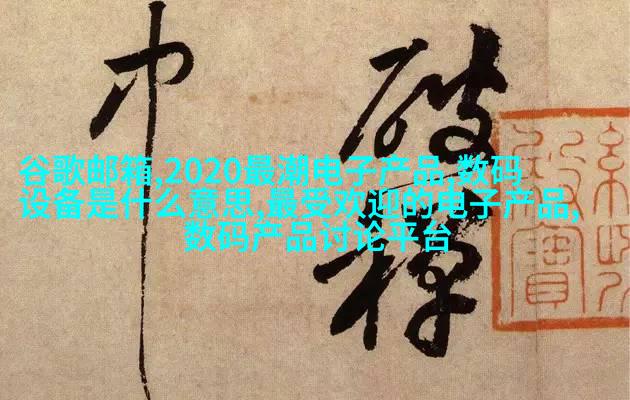 谷歌邮箱,2020最潮电子产品,数码
设备是什么意思,最受欢迎的电子产品,
数码产品讨论平台
破